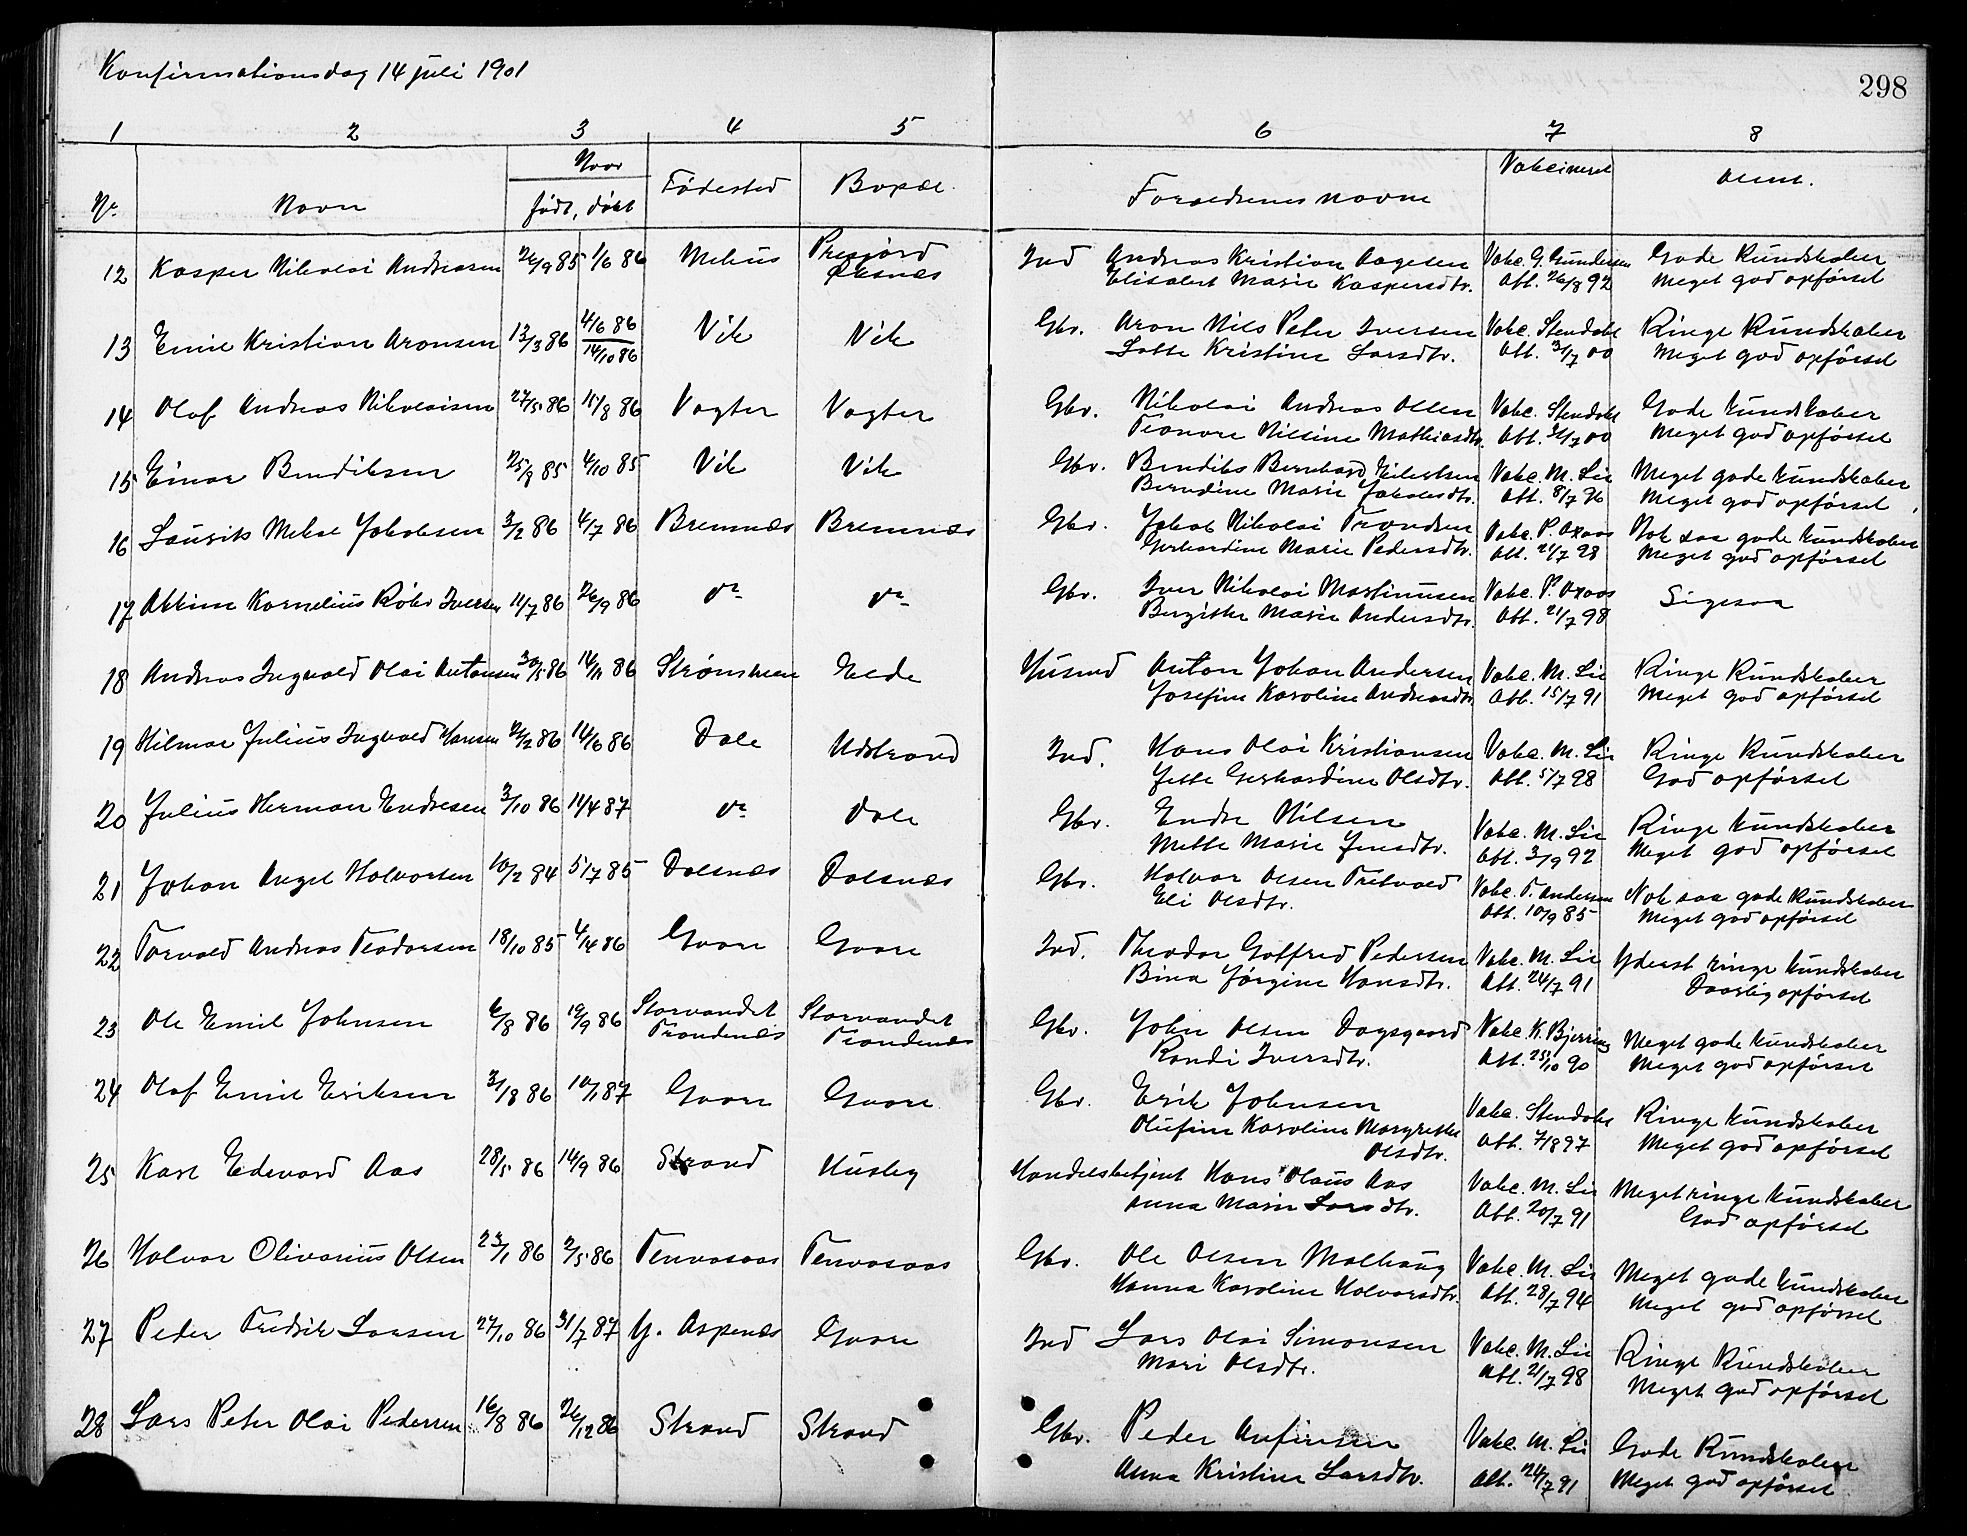 Konfirmationsdag 14 juli 1901
298
1 2 3 4 5 6 7 8
Nr. Navn Naar født, døbt Fødested Bopæl Forældrenes navne Vakcineret Anm.
12 Kasper Nikolai Andreasen 26/9 85 1/6 86 Melius Ind Andreas Kristian Aagesen Vakc. G. Gundersen Gode Kundskaber
Elisabet Marie Kaspersdtr. Att. 26/8 92 Meget god opførsel
13 Emil Kristian Aronsen 13/3 86 4/6 86 14/10 86 Vik Vik Gbr. Aron Nils Peter Iversen Vakc. Stendahl Ringe Kundskaber
Lotte Kristine Larsdtr. Att. 3/7 00 Meget god opførsel
14 Olaf Andreas Nikolaisen 27/5 86 15/8 86 Vagter Vagter Gbr. Nikolai Andreas Olsen Vakc. Stendahl Gode kundskaber
Nilsine Mathiasdtr. Att. 00 Meget god opførsel
15 Einar Bendiksen 25/8 85 4/10 85 Vik Vik Gbr. Bendiks Bernhard Eilertsen Vakc. M. Lie Meget gode kundskaber
Berndine Marie Jakobsdtr. Att. 8/7 Meget god opførsel
16 Laurits Mikal Jakobsen 3/2 86 4/7 86 Bremnæs Bremnæs Gbr. Jakob Nikolai Trondsen Vakc. P. Oxaas Nok saa gode kundskaber
Gerhardine Marie Pedersdtr. Att. 21/7 98 Meget god opførsel
17 Kornelius Iversen 11/7 86 26/9 86 do do Gbr. Iver Nikolai Martinusen Vakc. P. Oxaas Ligesaa
Birgithe Marie Andersdtr. Att. 21/7 98
18 Andreas Ingvald Olai Antonsen 30/5 86 14/11 86 Elde Husmd Anton Johan Andersen Vakc. M. Lie Ringe Kundskaber
Josefine Karoline Andreasdtr Att. 15/7 91 Meget god opførsel
19 Hilmar Julius Ingvald Hansen 86 14/6 86 Dale Udstrand Ind. Hans Olai Kristiansen Vakc. M. Lie Ringe Kundskaber
Jette Gerhardine Olsdtr. Att. 5/7 98 God opførsel
20 Julius Herman Endresen 3/10 86 11/4 87 do Dale Gbr. Endre Nilsen Vakc. M. Lie Ringe kundskaber
Mette Marie Jensdtr. Att. 3/9 92 Meget god opførsel
21 Johan Angel Halvorsen 10/2 84 5/7 85 Dalsnæs Dalsnæs Gbr. Halvor Olsen Vakc. T. Andersen Nok saa gode Kundskaber
Eli Olsdtr. Att. 10/9 85 Meget god opførsel
22 Torvald Andreas Teodorsen 18/10 85 4/4 86 Gaare Gaare Ind. Theodor Gotfred Pedersen Vakc. M. Lie Yderst ringe kundskaber
Bina Jørgine Hansdtr. Att. 24/7 91 Daarlig opførsel
23 Ole Emil Johnsen 6/8 86 19/9 86 Storvandet Storvandet Gbr. John Olsen Dagsgaard Vakc. K. Bjerring Meget gode kundskaber
Trondenæs Trondenæs Randi Iversdtr. Att. 25/10 90 Meget god opførsel
24 Olaf Emil Eriksen 31/8 86 10/1 87 Gaare Gaare Gbr. Erik Johnsen Vakc. Stendahl Ringe kundskaber
Olufine Karoline Margrethe Att. 7/8 97 Meget god opførsel
Olsdtr.
25 Karl Edevard Aas 28/5 86 14/9 86 Strand Husby Handelsbetjent Hans Olaus Aas Vakc. M. Lie Meget ringe kundskaber
Anna Marie Larsdtr. Att. 20/7 91 God opførsel
26 Halvor Olivarius Olsen 23/1 86 2/5 86 Tennvasaas Tennvasaas Gbr. Ole Olsen Molhaug Vakc. M. Lie Meget gode kundskaber
Hanna Karoline Halvorsdtr. Att. 28/7 94 Meget god opførsel
27 Peder Fredrik Larsen 27/10 86 31/7 87 Y. Aspenæs Gaare Ind Lars Olai Simonsen Vakc. M. Lie Ringe Kundskaber
Mari Olsdtr. Att. 21/7 98 Meget god opførsel
28 Lars Peter Olai Pedersen 16/8 86 26/12 86 Strand Strand Gbr. Peder Anfinsen Vakc. M. Lie Gode Kundskaber
Anna Kristine Larsdtr. Att. 24/7 91 Meget god opførsel